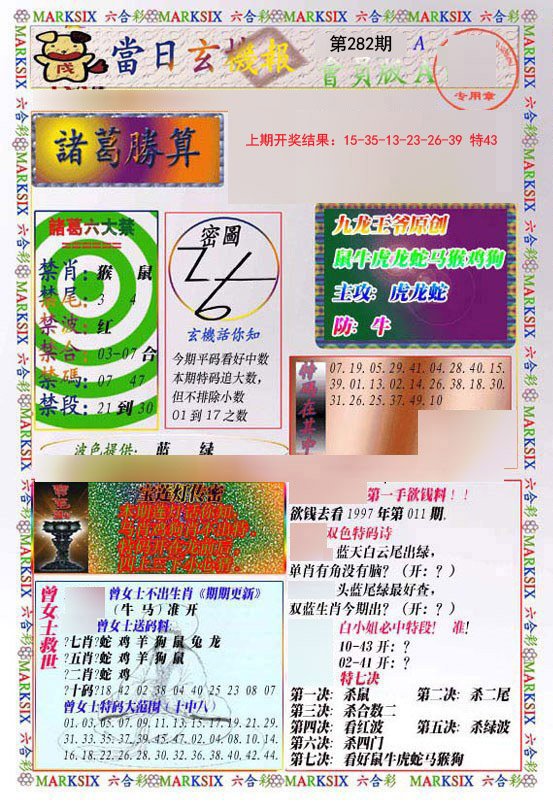 MARKSIX 六合彩 MARKSIX 六合彩 MARKSIX 六合彩 MARKSIX 六合彩
當日玄機報
第282期 A
會員版A
专用章
諸葛勝算
上期开奖结果：15-35-13-23-26-39 特43
諸葛六大禁
禁肖：猴 鼠
禁尾：3 4
禁波：红
禁合：03-07合
禁碼：07 47
禁段：21到30
密圖
玄機話你知
今期平码看好中数
本期特码追大数，
但不排除小数
01到17之数
九龙王爷原创
鼠牛虎龙蛇马猴鸡狗
主攻：虎龙蛇
防：牛
特码在其中
07.19.05.29.41.04.28.40.15.
39.01.13.02.14.26.38.18.30.
31.26.25.37.49.10
波色提供：蓝 绿
宝莲灯传密
第一手欲钱料！！
欲钱去看1997年第011期.
双色特码诗
蓝天白云尾出绿，
单肖有角没有脑？（开：？）
头蓝尾绿最好查，
双蓝生肖今期出？（开：？）
白小姐必中特段！ 准！
10-43开：？
02-41开：？
特七决
第一决：杀鼠 第二决：杀二尾
第三决：杀合数二
第四决：看红波 第五决：杀绿波
第六决：杀四门
第七决：看好鼠牛虎蛇马猴狗
曾女士救世
曾女士不出生肖《期期更新》
（牛 马）准开
曾女士送码料:
?七肖?蛇 鸡 羊 狗 鼠 兔 龙
?五肖?蛇 鸡 羊 狗 鼠
?二肖?蛇 鸡
?十码?18 42 02 38 04 40 25 23 08 07
曾女士特码大范围（十中八）
01.03.05.07.09.11.13.15.17.19.21.29.
31.33.35.37.39.45.47.02.04.08.10.14.
16.18.22.26.28.30.32.36.38.40.42.44.
MARKSIX 六合彩 MARKSIX 六合彩 MARKSIX 六合彩 MARKSIX 六合彩